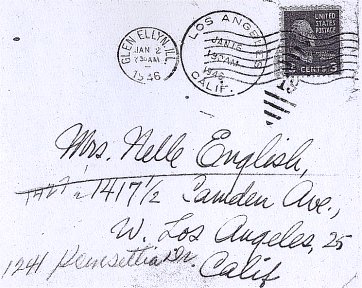 GLEN ELLYN, ILL.
JAN 2
7 30 AM
1946
LOS ANGELES
JAN 15
1946
CALIF.
UNITED STATES
POSTAGE
CENTS 3
Mrs. Nelle English,
1417 1/2 Camden Ave.,
W. Los Angeles, 25
1241 Poinsettia Dr.
Calif